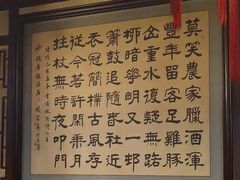 莫笑農家臘酒渾
豐年留客足雞豚
山重水復疑無路
柳暗華明又一邨
簫鼓追隨春社近
衣冠簡樸古風存
從今若許閑乘月
拄杖無時夜叩門